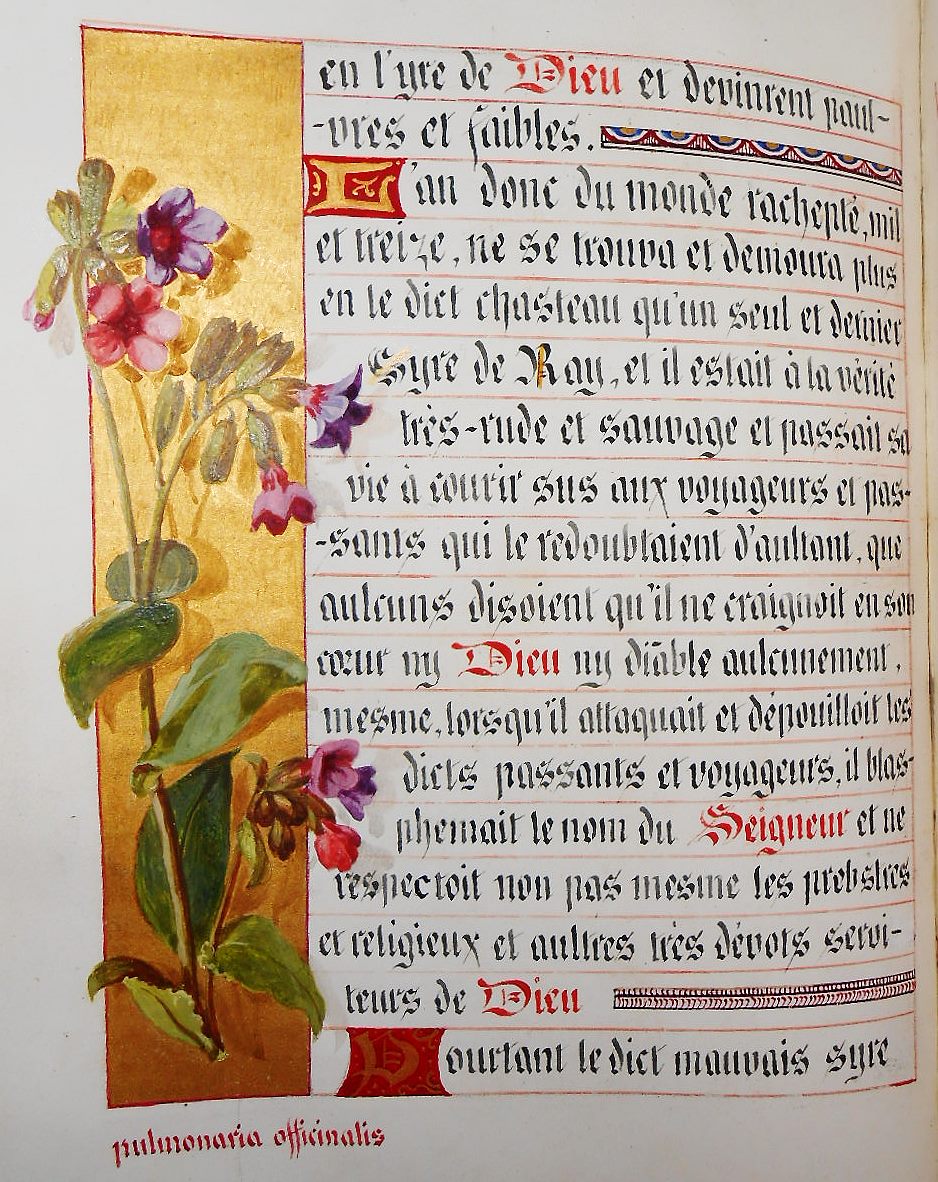 en l'yre de Dieu et devinrent paul-
-vres et faibles.
L'an donc du monde rachepté, mil
et treize, ne se trouva et demoura plus
en le dict chasteau qu'un seul et dernier
Syre de Ray, et il estait à la vérité
très-rude et sauvage et passait sa
vie à courir sus aux voyageurs et pas-
-sants qui le redoubtaient d'aultant, que
aulcuns disoient qu'il ne craignoit en son
cœur ny Dieu ny diable aulcunement,
mesme, lorsqu'il attaquait et dépouilloit les
dicts passants et voyageurs, il blas-
phemait le nom du Seigneur et ne
respectoit non pas mesme les prebstres
et religieux et aultres très dévots servi-
teurs de Dieu
Pourtant le dict mauvais syre
pulmonaria officinalis